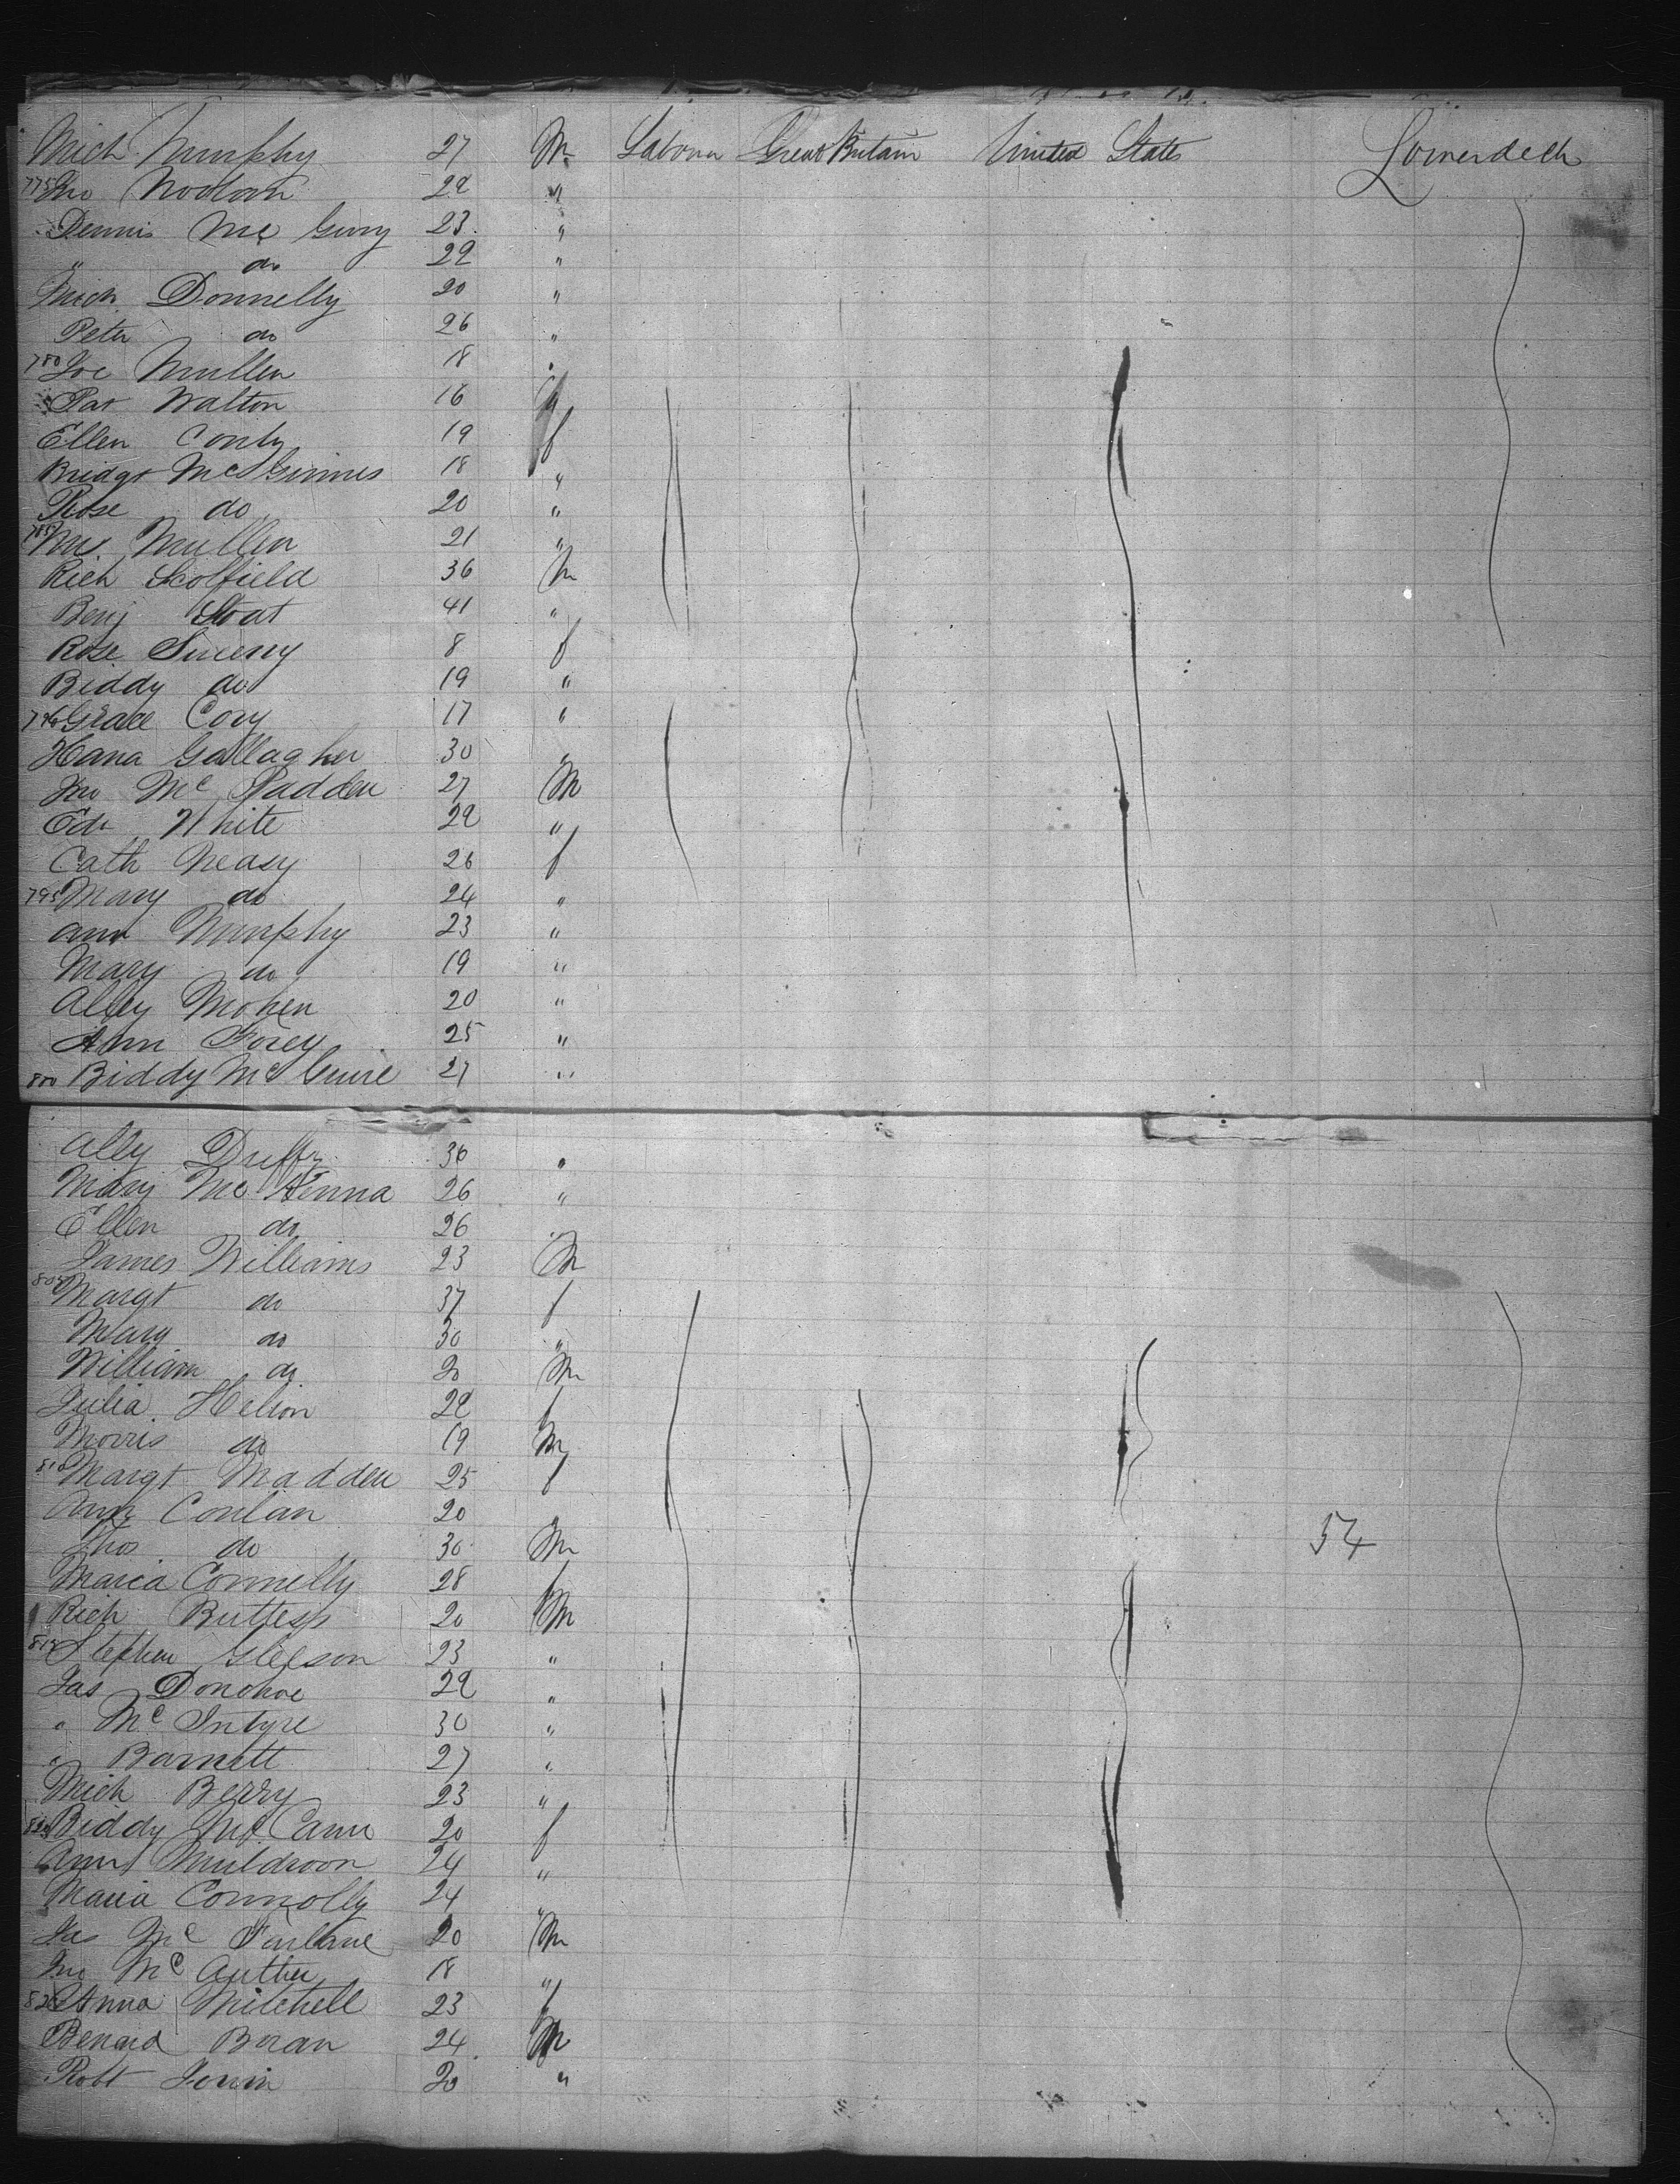 Mich Murphy 27 M Labour Great Britain United States Lowerdeck
775 Jno Noolan 22 "
Dennis Mc Givry 23 "
" do 22 "
Mich Donnelly 20 "
Peter do 26 "
780 Joe Mullen 18 "
Pat Walton 16 "
Ellen Conty 19 f
Bridgt McGinnes 18 "
Rose do 20 "
785 Mullen 21 "
Rich Scolfield 36 M
Benj Stoat 41 "
Rose Sweeny 8 f
Biddy do 19 "
790 Grace Cory 17 "
Hana Gallagher 30 "
Jno Mc Padden 27 M
Ed White 22 "
Cath Neasy 26 f
795 Mary do 24 "
Ann Murphy 23 "
Mary do 19 "
Alley Mohen 20 "
Ann Forey 25 "
800 Biddy McGuire 27 "
Ally Duffy 30 "
Mary Mc Kenna 26 "
Ellen do 26 "
James Williams 23 M
805 Margt do 37 f
Mary do 30 "
William do 20 M
Julia Helion 22 f
Morris do 19 M
810 Margt Madden 25 f
Ann Conlan 20 "
Thos do 30 M 54
Maria Connelly 28 f
Rich Butless 20 M
815 Stephen Gleeson 23 "
Jas Donohoe 22 "
" Mc Intyre 30 "
" Barnett 27 "
Mich Berry 23 "
820 Biddy Mc Cann 20 f
Ann Muldroon 24 "
Maria Connolly 24 "
Jas Mc Farlane 20 M
Jno Mc Auther 18 "
825 Anna Mitchell 23 f
Benard Boran 24 M
Robt Irwin 20 "